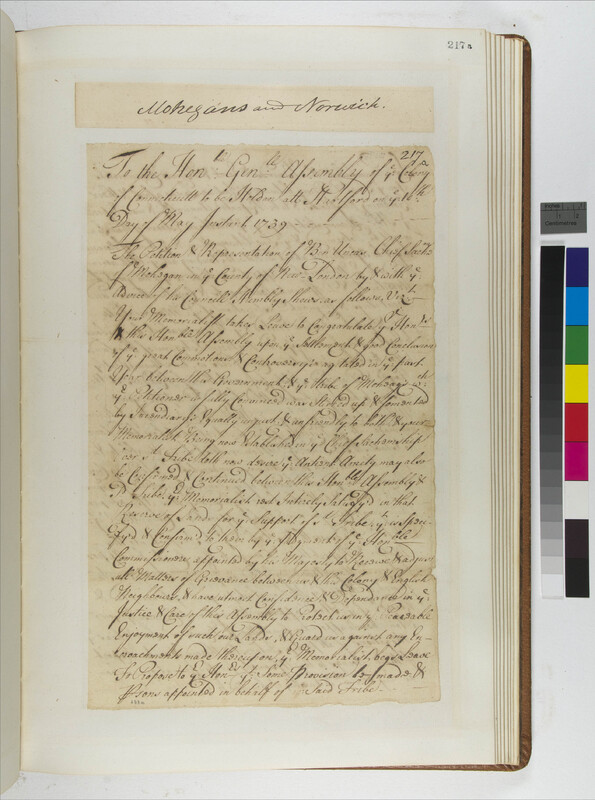 217a
Mohegans and Norwich.
217a
To the Hon.ble Gen.ll Assembly of ye Colony
of Connecticutt to be Holden att Hartford on ye
Day of May Instant 1739
The Petition & Representation of Ben Uncas Chief Sachem
of Mohegan in ye County of New London by & with ye
Advice of his Councill Humbly Shews as follows Vizt
Your Memorialist takes Leave to Congratulate ye Hon.rs
this Hon.ble Assembly upon ye Settlement & good Conclusion
of ye great Commotions & Controversy agitated in ye past
Year between this Government & ye tribe of Mohegan wch
ye Petitioner is fully Convinced was Stirred up & fomented
by Incendiarys Equally unjust & unfriendly to both & your
Memorialist being now Established in ye Chief Sachemship
over sd Tribe doth now desire ye Antient Amity may also
be Confirmed & Continued between this Hon.ble Assembly &
sd Tribe, yr Memorialist rests Intirely Satisfyd in that
Reserve of Lands for ye Support of sd Tribe,
& Confirmd to them by ye of ye Hon.ble
Commissioners appointed by his Majesty to & adjust
all Matters of Grievance between us & this Colony & English
Neighbours, & have utmost Confidence & Dependence in ye
Justice & Care of this Assembly to Protect us in ye Peaceable
Enjoyment of such our Lands, & Guard us against any En-
croachments made thereupon, yr Memorialist begs Leave
To Propose to yr Hon.rs yt Some Provision be made &
Psons appointed in behalf of sd Tribe